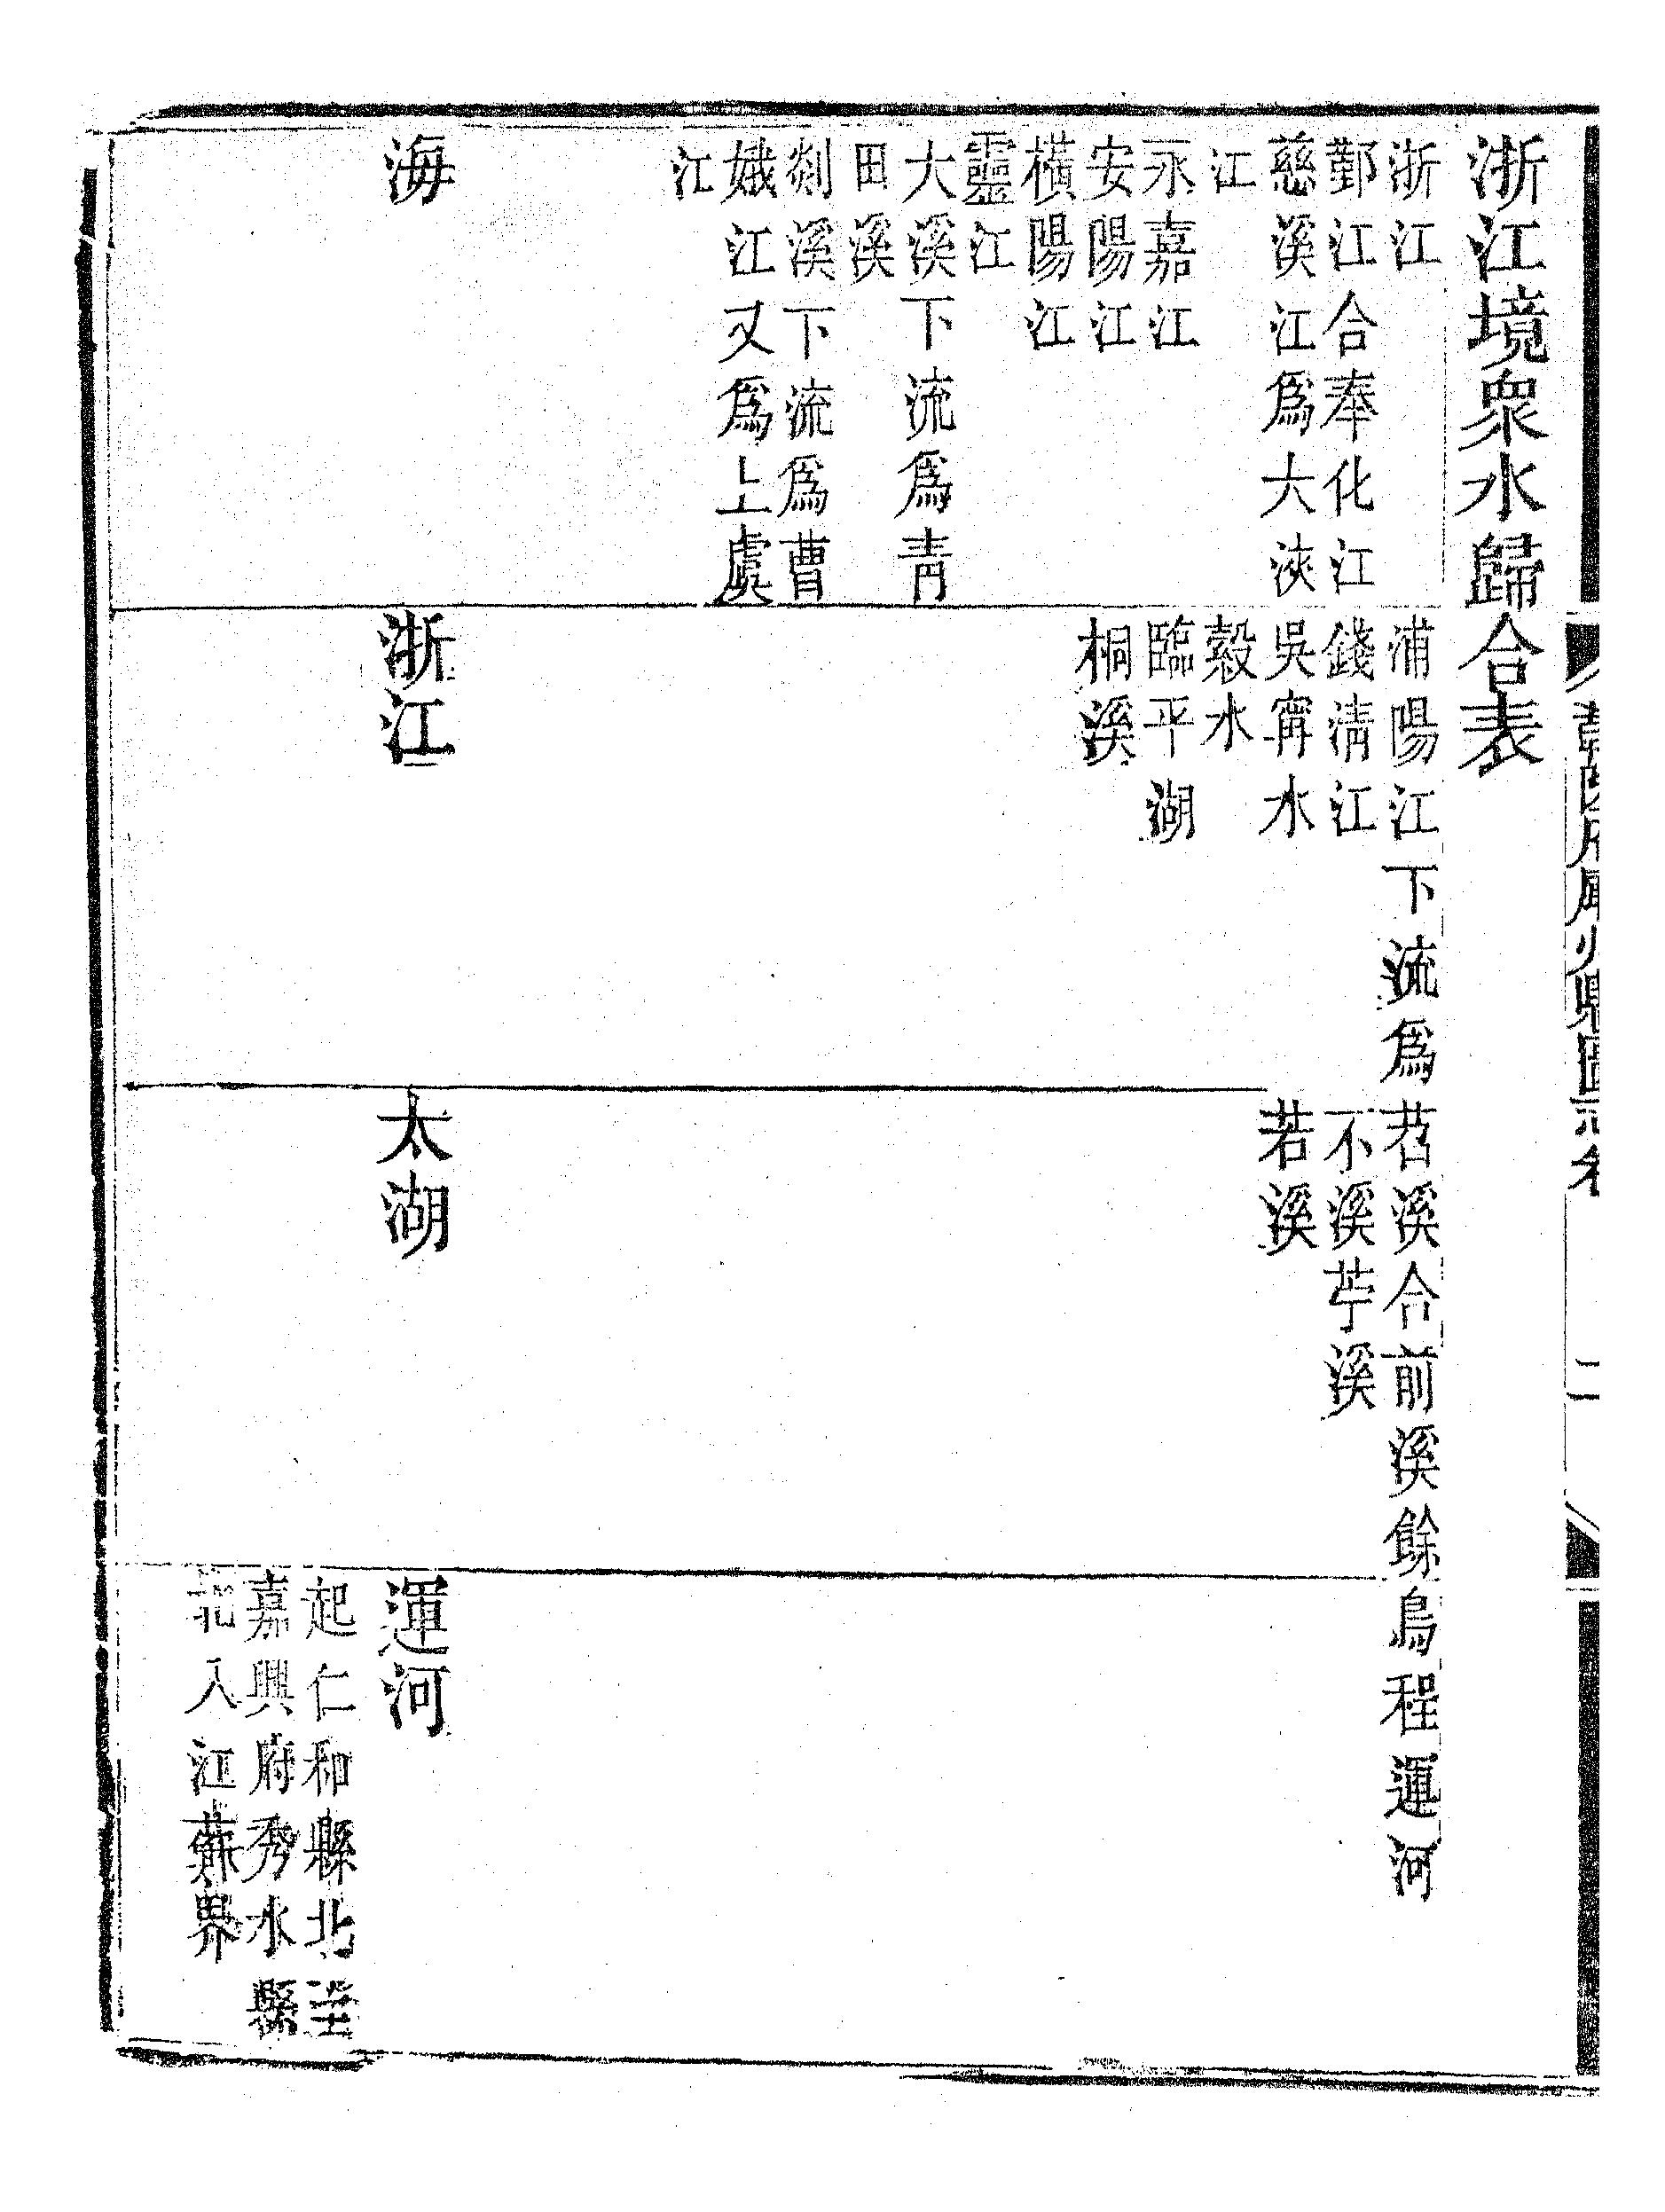 浙江境衆水歸合表
浙江
鄞江合奉化江
慈溪江爲大浹
江
永嘉江
安陽江
橫陽江
靈江
大溪下流爲靑
田溪
剡溪下流爲曹
娥江又爲上虞
江
海
浦陽江下流爲
錢淸江
吳甯水
縠水
臨平湖
桐溪
浙江
苕溪合前溪餘
不溪苧溪
若溪
太湖
烏程運河
運河
起仁和縣北逕
嘉興府秀水縣
北入江蘇界
乾隆府廳州縣圖志卷
二